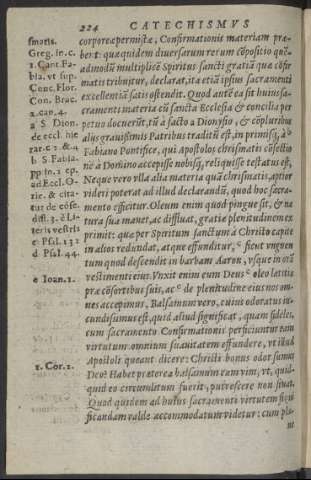 224 CATECHISMVS
corporeæ permistæ, Confirmationis materiam præ-
bent: quæ quidem diuersarum rerum cōpositio quē-
admodū multiplicē Spiritus sancti gratiā quæ cōfir
matis tribuitur, declarat, ita etiā ipsius sacramenti
excellentiā satis ostendit. Quod autē ea sit huius sa-
cramenti materia cū sancta Ecclesia & concilia per
petuo docuerūt, tū à sacto a Dionysio, & cōpluribus
aliis grauissimis Patribus traditū est, in primisq; à b
Fabiano Pontifice, qui Apostolos chrismatis cōfectio
nē à Domino accepisse nobisq; reliquisse testatus est,
Neque vero vlla alia materia quā chrismatis, aptior
videri poterat ad illud declarandū, quod hoc sacra-
mento efficitur. Oleum enim quod pingue sit, & na
tura sua manet, ac diffluat, gratiæ plenitudinem ex
primit: quæ per Spiritum sanctum à Christo capite
in alios redundat, atque effunditur, c sicut vnguen
tum quod descendit in barbam Aaron, vsque in orā
vestimenti eius. Vnxit enim eum Deus d oleo lætitiæ
præ cōsortibus suis, ac e de plenitudine eius nos om-
nes accepimus. Balsamum vero, cuius odoratus iu-
cundissimus est, quid aliud significat, quam fideles,
cum sacramento Confirmationis perficiuntur eam
virtutum omnium suauitatem effundere, vt illud
Apostoli queant dicere: Christi bonus odor sumus
Deo? Habet præterea balsamum eam vim, vt, quid-
quid eo circumlitum fuerit, putrescere non sinat.
Quod quidem ad huius sacramenti virtutem signi
ficandam valde accommodatum videtur: cum pla-
ne
smatis.
Greg. in. c.
1. Cant. Fa-
bia. vt sup.
Conc. Flor.
Con. Brac.
2. can. 4.
a S. Dion.
de eccl. hie
rar. c. 2. & 4
b S. Fabia.
pp. in. 2 ep.
ad Eccl. O-
rie. & cita-
tur de cōse.
dist. 3. c. Li-
teris vestris
c Psal. 132
d Psal. 44.
e Ioan. 1.
2. Cor. 2.